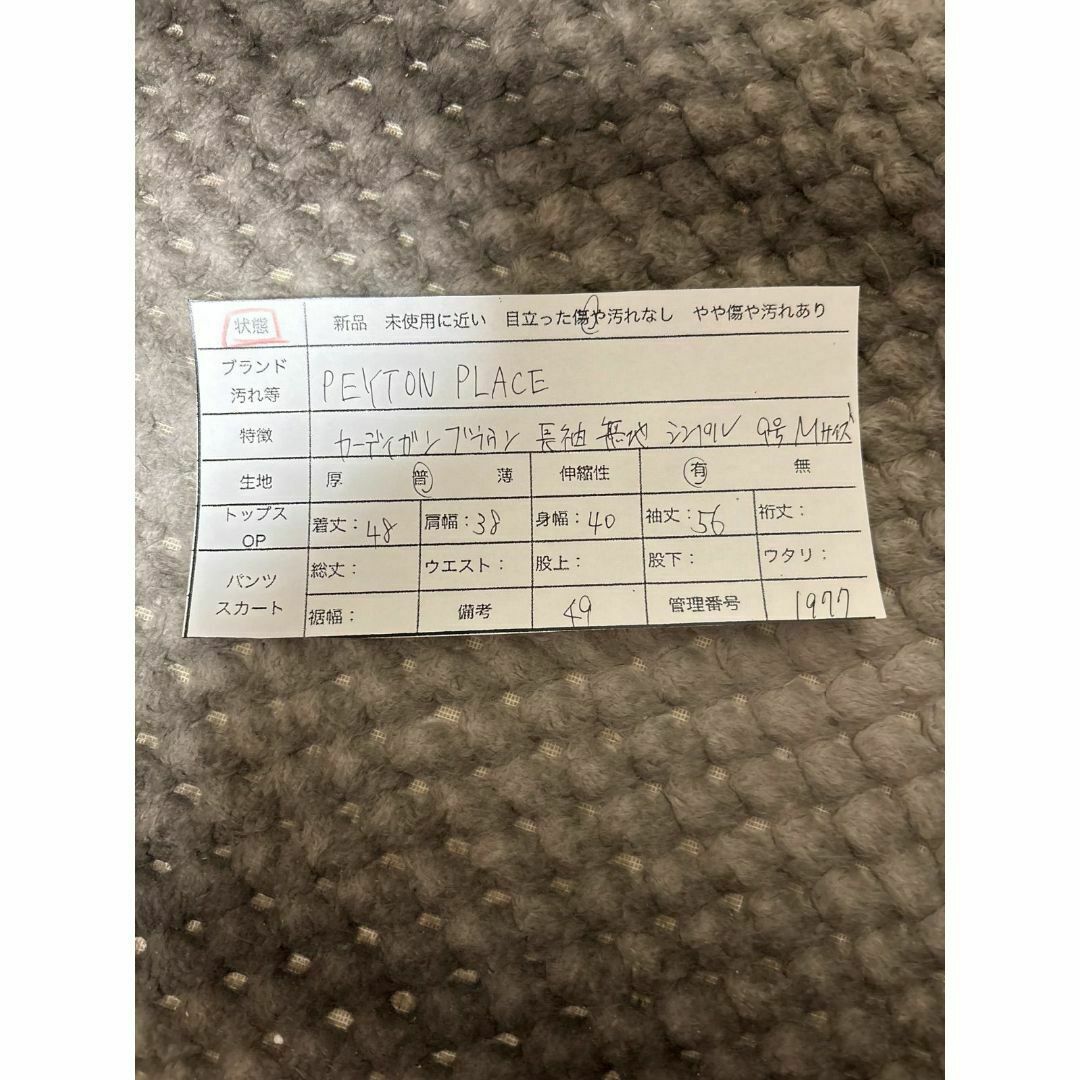 状態 新品 未使用に近い 目立った傷や汚れなし やや傷や汚れあり
ブランド
汚れ等 PEYTON PLACE
特徴 カーディガン ブラウン 長袖 無地 シンプル 9号 Mサイズ
生地 厚 普 薄 伸縮性 有 無
トップス
OP 着丈：48 肩幅：38 身幅：40 袖丈：56 裄丈：
パンツ
スカート 総丈： ウエスト： 股上： 股下： ワタリ：
裾幅： 備考 49 管理番号 1977